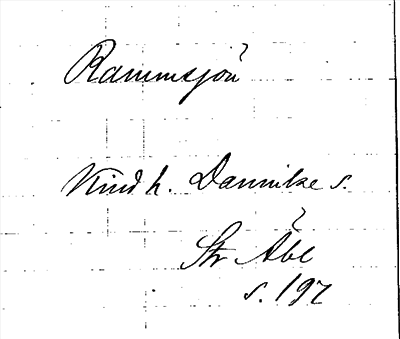 Rammsjön
Kind h. Dannike s.
Str Åbl
s. 197